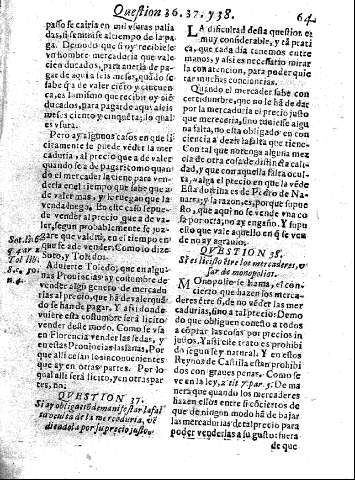 Question 36. 37. y 38. 64
passo se cairia en mil vsuras palia
das, si se mirasse al tiempo de la pa
ga. De modo que si oy recibiesse
vn hombre mercaduria que vale
cien ducados, para auerla de pa-
gar de aqui a seis meses, quãdo se
sabe q̃ à de valer ciẽto y cincuen
ta, es lo mismo que recibir oy cie
ducados, para pagar de aqui a seis
meses ciento y cinquẽta, lo qual
es vsura.
Pero ay algunos casos en que li
citamente se puede vẽder la mer
caduria, al precio que a de valer
quando se a de pagar: como quan
do el mercader la tiene para ven-
derla en el tiempo que sabe que a
de valer mas, y le ruegan que la
venda luego. En este caso se pue-
de vender al precio que a de va-
ler, segun probablemente se juz-
gare que valdrà, en el tiempo en
que se a de vender. Como lo dize
Soto, y Toledo.
Aduierte Toledo, que en algu-
nas Prouincias ay costumbre de
vender algun genero de mercadu
rias al precio, que hã de valer quã
do se han de pagar. Y assi donde
vuiere esta costumbre serà licito
vender deste modo. Como se vsa
en Florencia vender las sedas, y
en estas Prouincias las lanas, Por
que alli cesan los inconuenientes
que ay en otras partes. Por lo
qual alli serà licito, y en otras par
tes, no.
QVESTION 37.
Si ay obligaciõ de manifestar la fal
ta oculta de la mercaduria, vẽ
diendola por su precio justo.
Sot. li. 6.
Tol lib.
n.4.
LA dificultad desta question es
muy considerable, y en la prati
ca, que cada dia tenemos entre
manos, y assi es necessario mirar
la con atencion, para poder quie
tar muchas conciencias.
Quando el mercader sabe con
certidumbre, que no le hã de dar
por la mercaduria el precio justo
que merecia, sino tuuiesse algu
na falta, no esta obligado en con
ciencia a dezir la falta que tiene.
Con tal que no tenga alguna mez
cla de otra cosa de distincta cali-
dad, y que con aquella falta ocul
ta, valga el precio en que la vẽde
Esta dotrina es de Pedro de Na-
uarra; y la razon es, porque supue
sto, que aqui no se vende vna co
sa por otra, no ay engaño. Y supu
esto que vale aquello en q̃ se ven
de no ay agrauio.
QVESTION 38.
Si es licito entre los mercaderes, v
sar de monopolios.
MOnopolio se llama, el con-
cierto, que hazen los merca-
deres ẽtre si, de no vẽdet las mer
cadurias, sino a tal precio: Demo
do que obliguen con esto a todos
a cõprar las cosas por precios in
justos. Y assi este trato es prohibi
do segun ley natural. Y en estos
Reynos de Castilla estan prohibi
dos con graues penas. Como se
ve en la ley, 2. tit 7. par 5. De ma
nera que quando los mercaderes
hazen ellos entre si cõciertos de
que de ningun modo hã de bajar
las mercadurias de tal precio para
poder venderlas a su gusto: fuera
de que